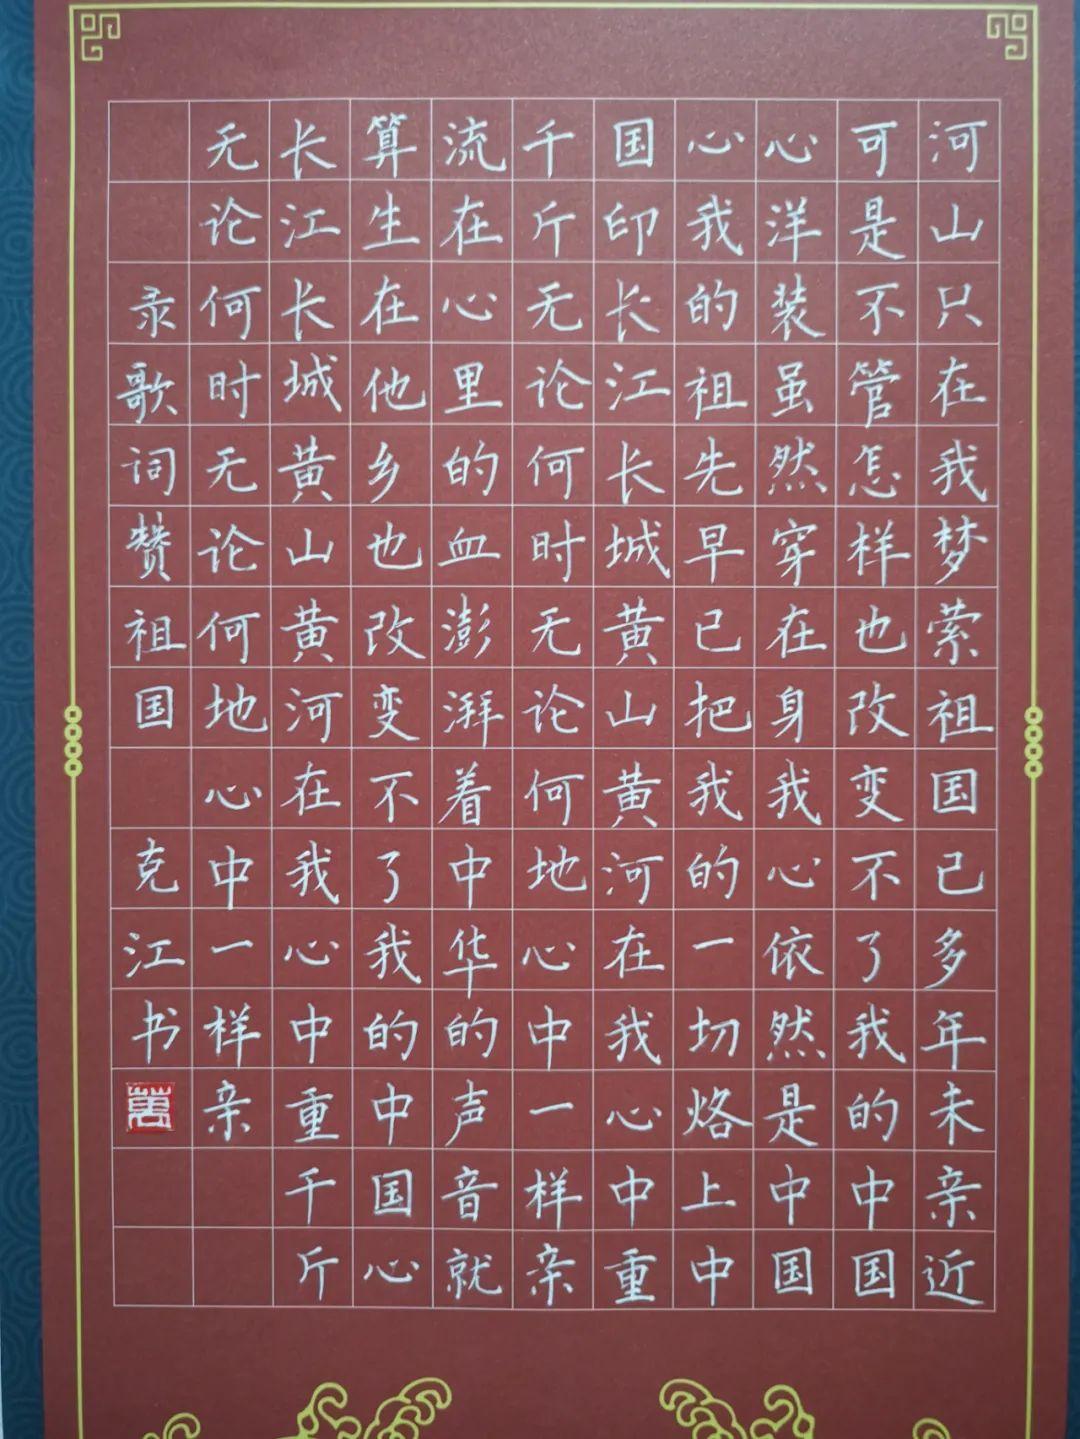 河山只在我梦萦祖国已多年未亲近
可是不管怎样也改变不了我的中国
心洋装虽然穿在身我心依然是中国
心我的祖先早已把我的一切烙上中
国印长江长城黄山黄河在我心中重
千斤无论何时无论何地心中一样亲
流在心里的血澎湃着中华的声音就
算生在他乡也改变不了我的中国心
长江长城黄山黄河在我心中重千斤
无论何时无论何地心中一样亲
录歌词赞祖国 克江书
萬